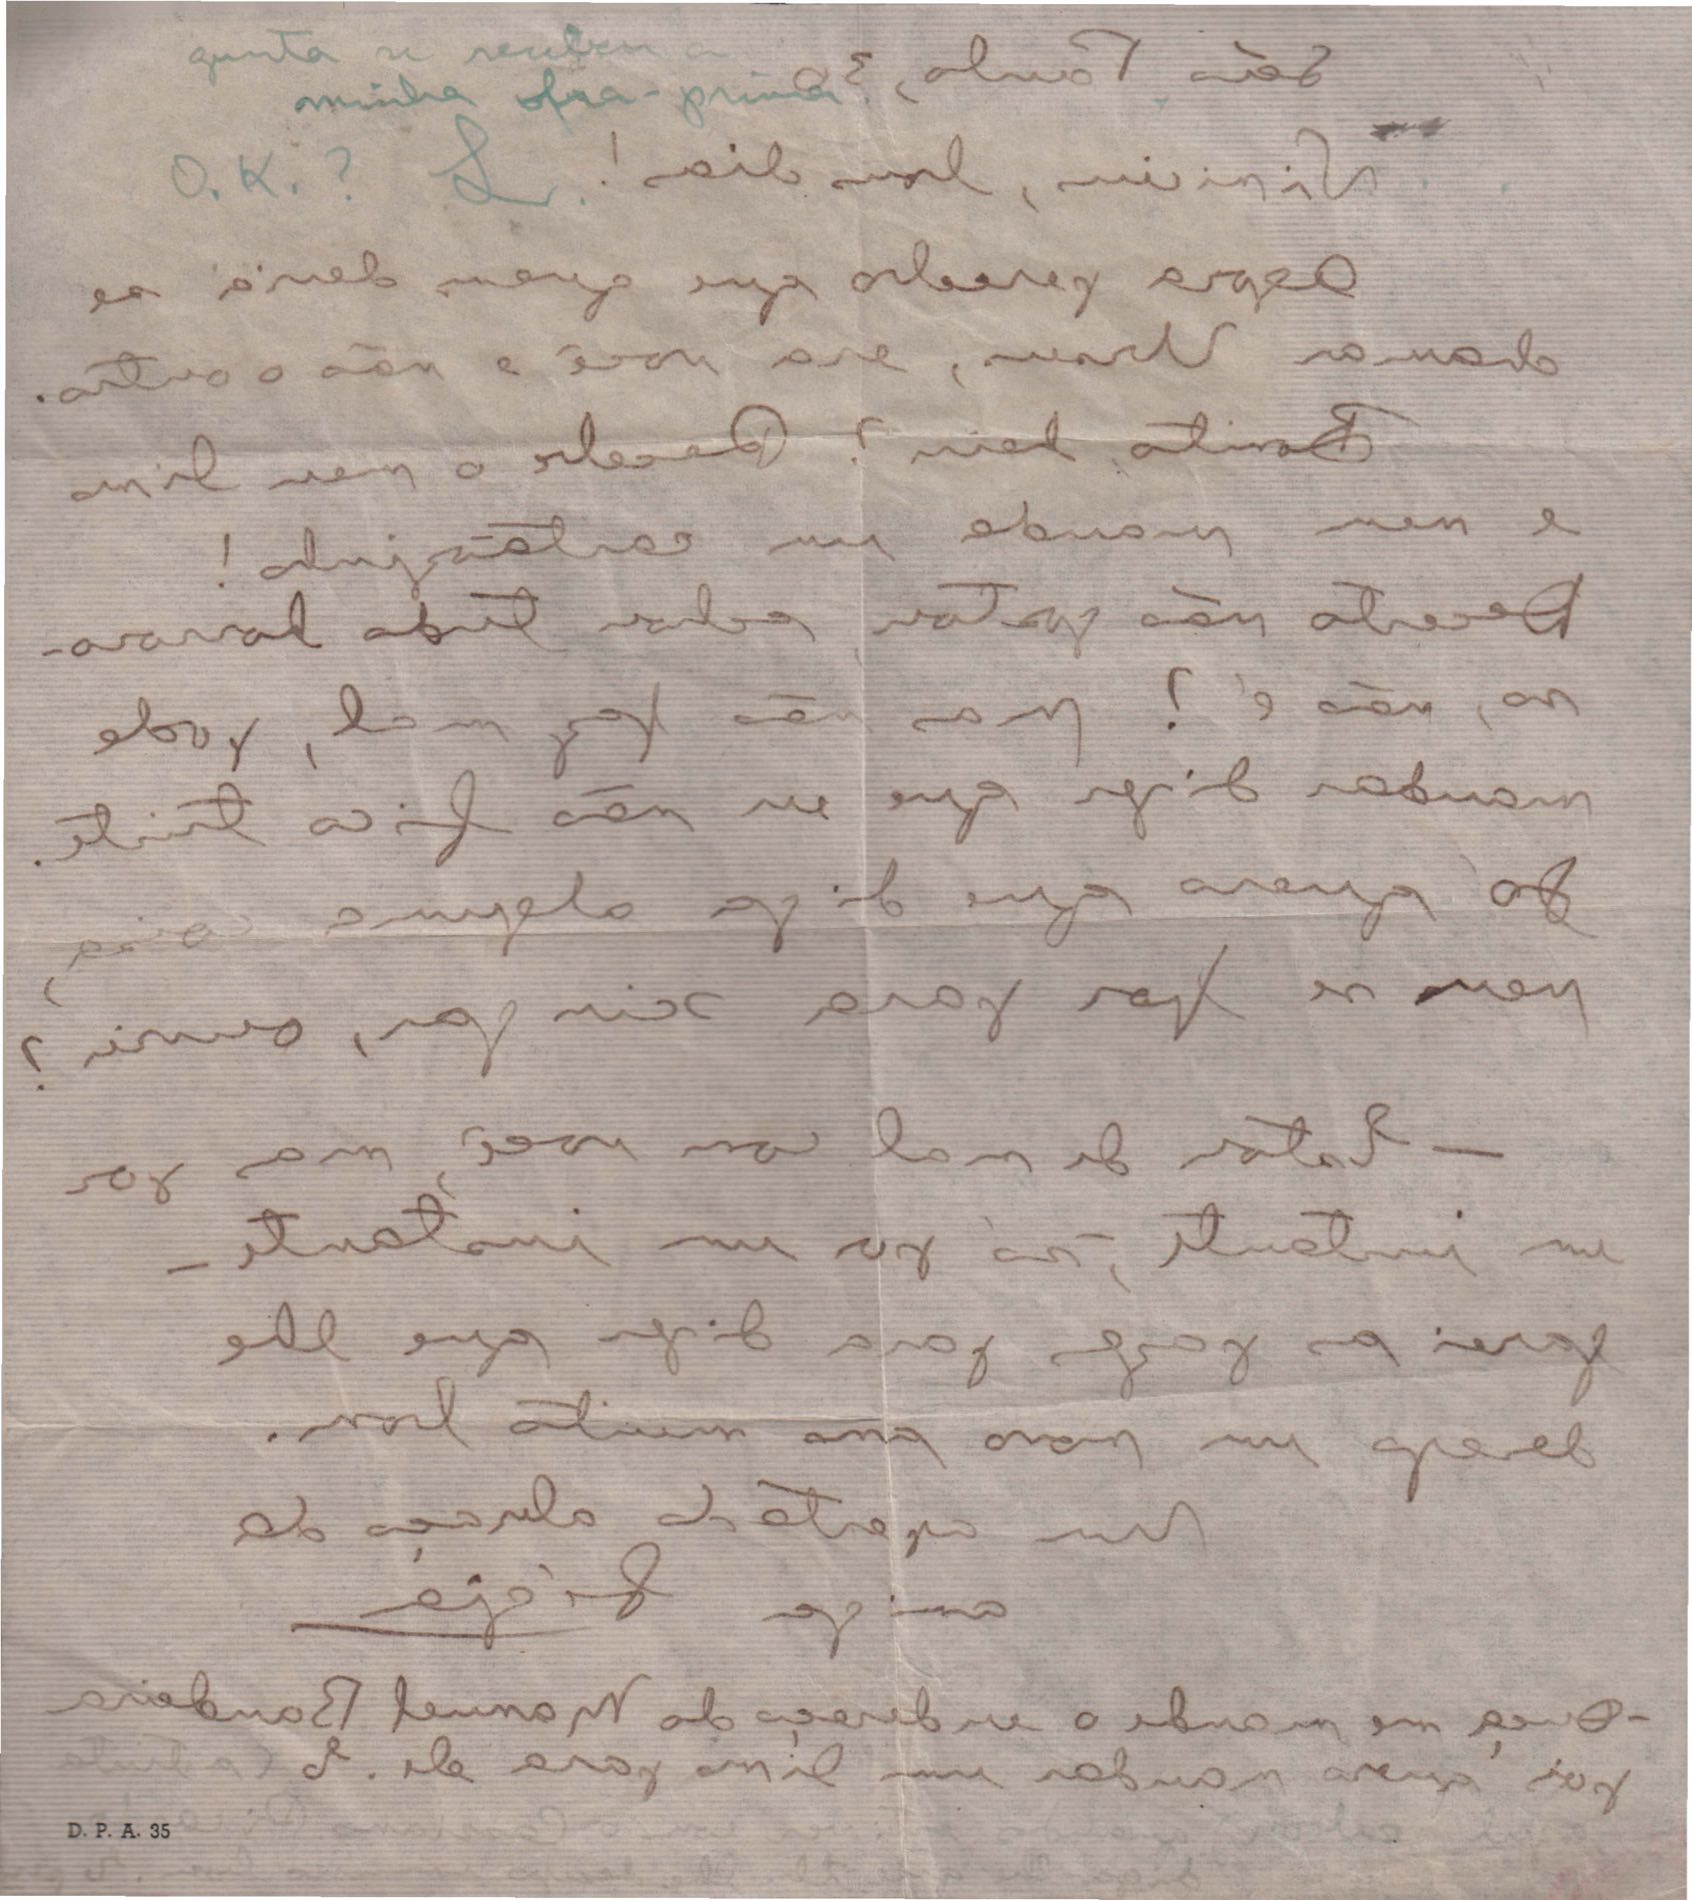 gunta se recebeu a
minha obra-prima.
O.K.? L.
São Paulo, 30
bom dia!
Agora percebo que quem devia se
chamar era você e não o outro.
Bonito, hein? Recebe o meu livro
e nem manda um cartãozinho!
Decerto não gostou, achou tudo horroro-
so, não é? Mas não faz mal, pode
mandar dizer que eu não fico triste.
Só quero que diga alguma coisa,
nem se for para xingar, ouviu?
— Estou de mal com você, mas por
um instante, só por um instante —
farei as pazes para dizer que lhe
desejo um novo ano muito bom.
Um apertado abraço da
amiga Lygia
me mande o endereço do Manuel Bandeira
pois quero mandar um livro para ele. L
D. P. A. 35